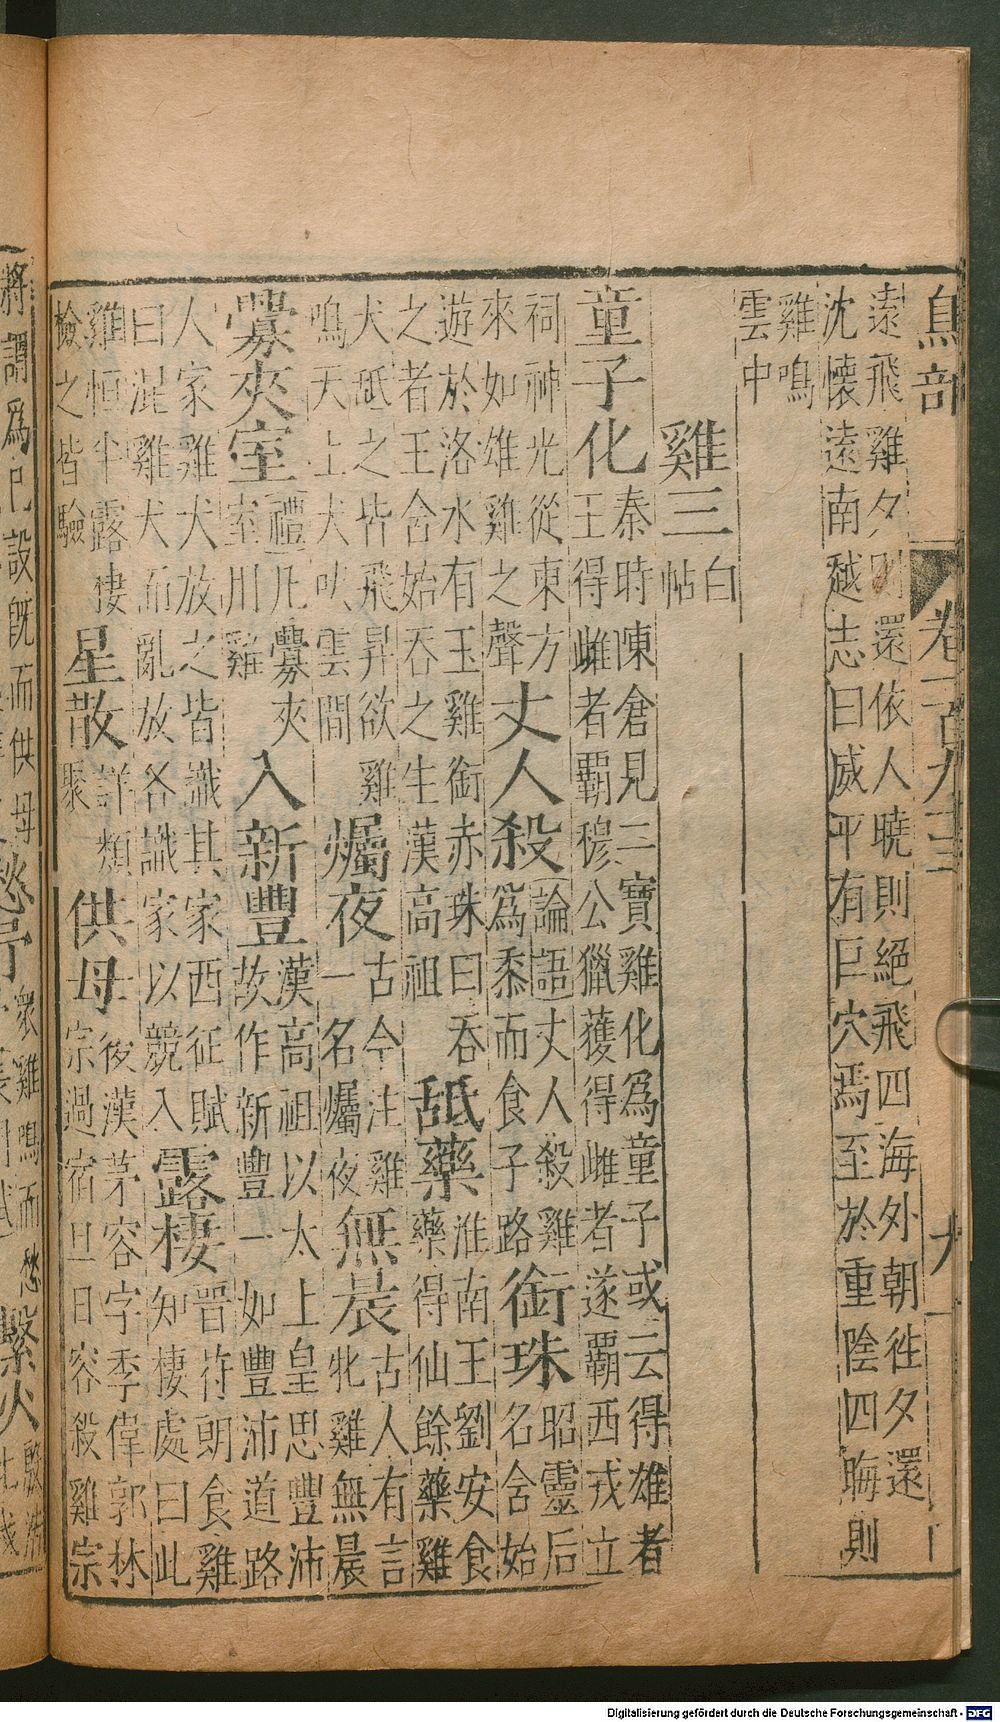 鳥部 卷一百九十三 十
遠飛雞夕則還依人曉則絕飛四海外朝徃夕還
沈懷遠南越志曰威平有巨穴焉至於重陰四晦則
雞鳴
雲中
雞三 白
帖
童子化 秦時陳倉見三寶雞化為童子或云得雄者
王得雌者覇穆公獵獲得雌者遂覇西戎立
祠神光從東方
來如雄雞之聲
丈人殺 論語丈人殺雞
為黍而食子路
銜珠 昭靈后
名含始
遊於洛水有玉雞銜赤珠曰吞
之者王含始吞之生漢高祖
舐藥 淮南王劉安食
藥得仙餘藥雞
犬舐之皆飛昇欲雞
鳴天上犬吠雲間
爥夜 古今注雞
一名爥夜
無晨 古人有言
牝雞無晨
釁夾室 禮凡釁夾
室用雞
入新豐 漢高祖以太上皇思豐沛
故作新豐一如豐沛道路
人家雞犬放之皆識其家西征賦
曰混雞犬而亂放各識家以競入
露棲 晉苻朗食雞
知棲處曰此
雞恒半露棲
檢之皆驗
星散 詳類
聚
供母 後漢茅容字季偉郭林
宗過宿旦日容殺雞宗
將謂為己設旣而供母
愁
眾雞鳴而愁
Digitalisierung gefördert durch die Deutsche Forschungsgemeinschaft - DFG